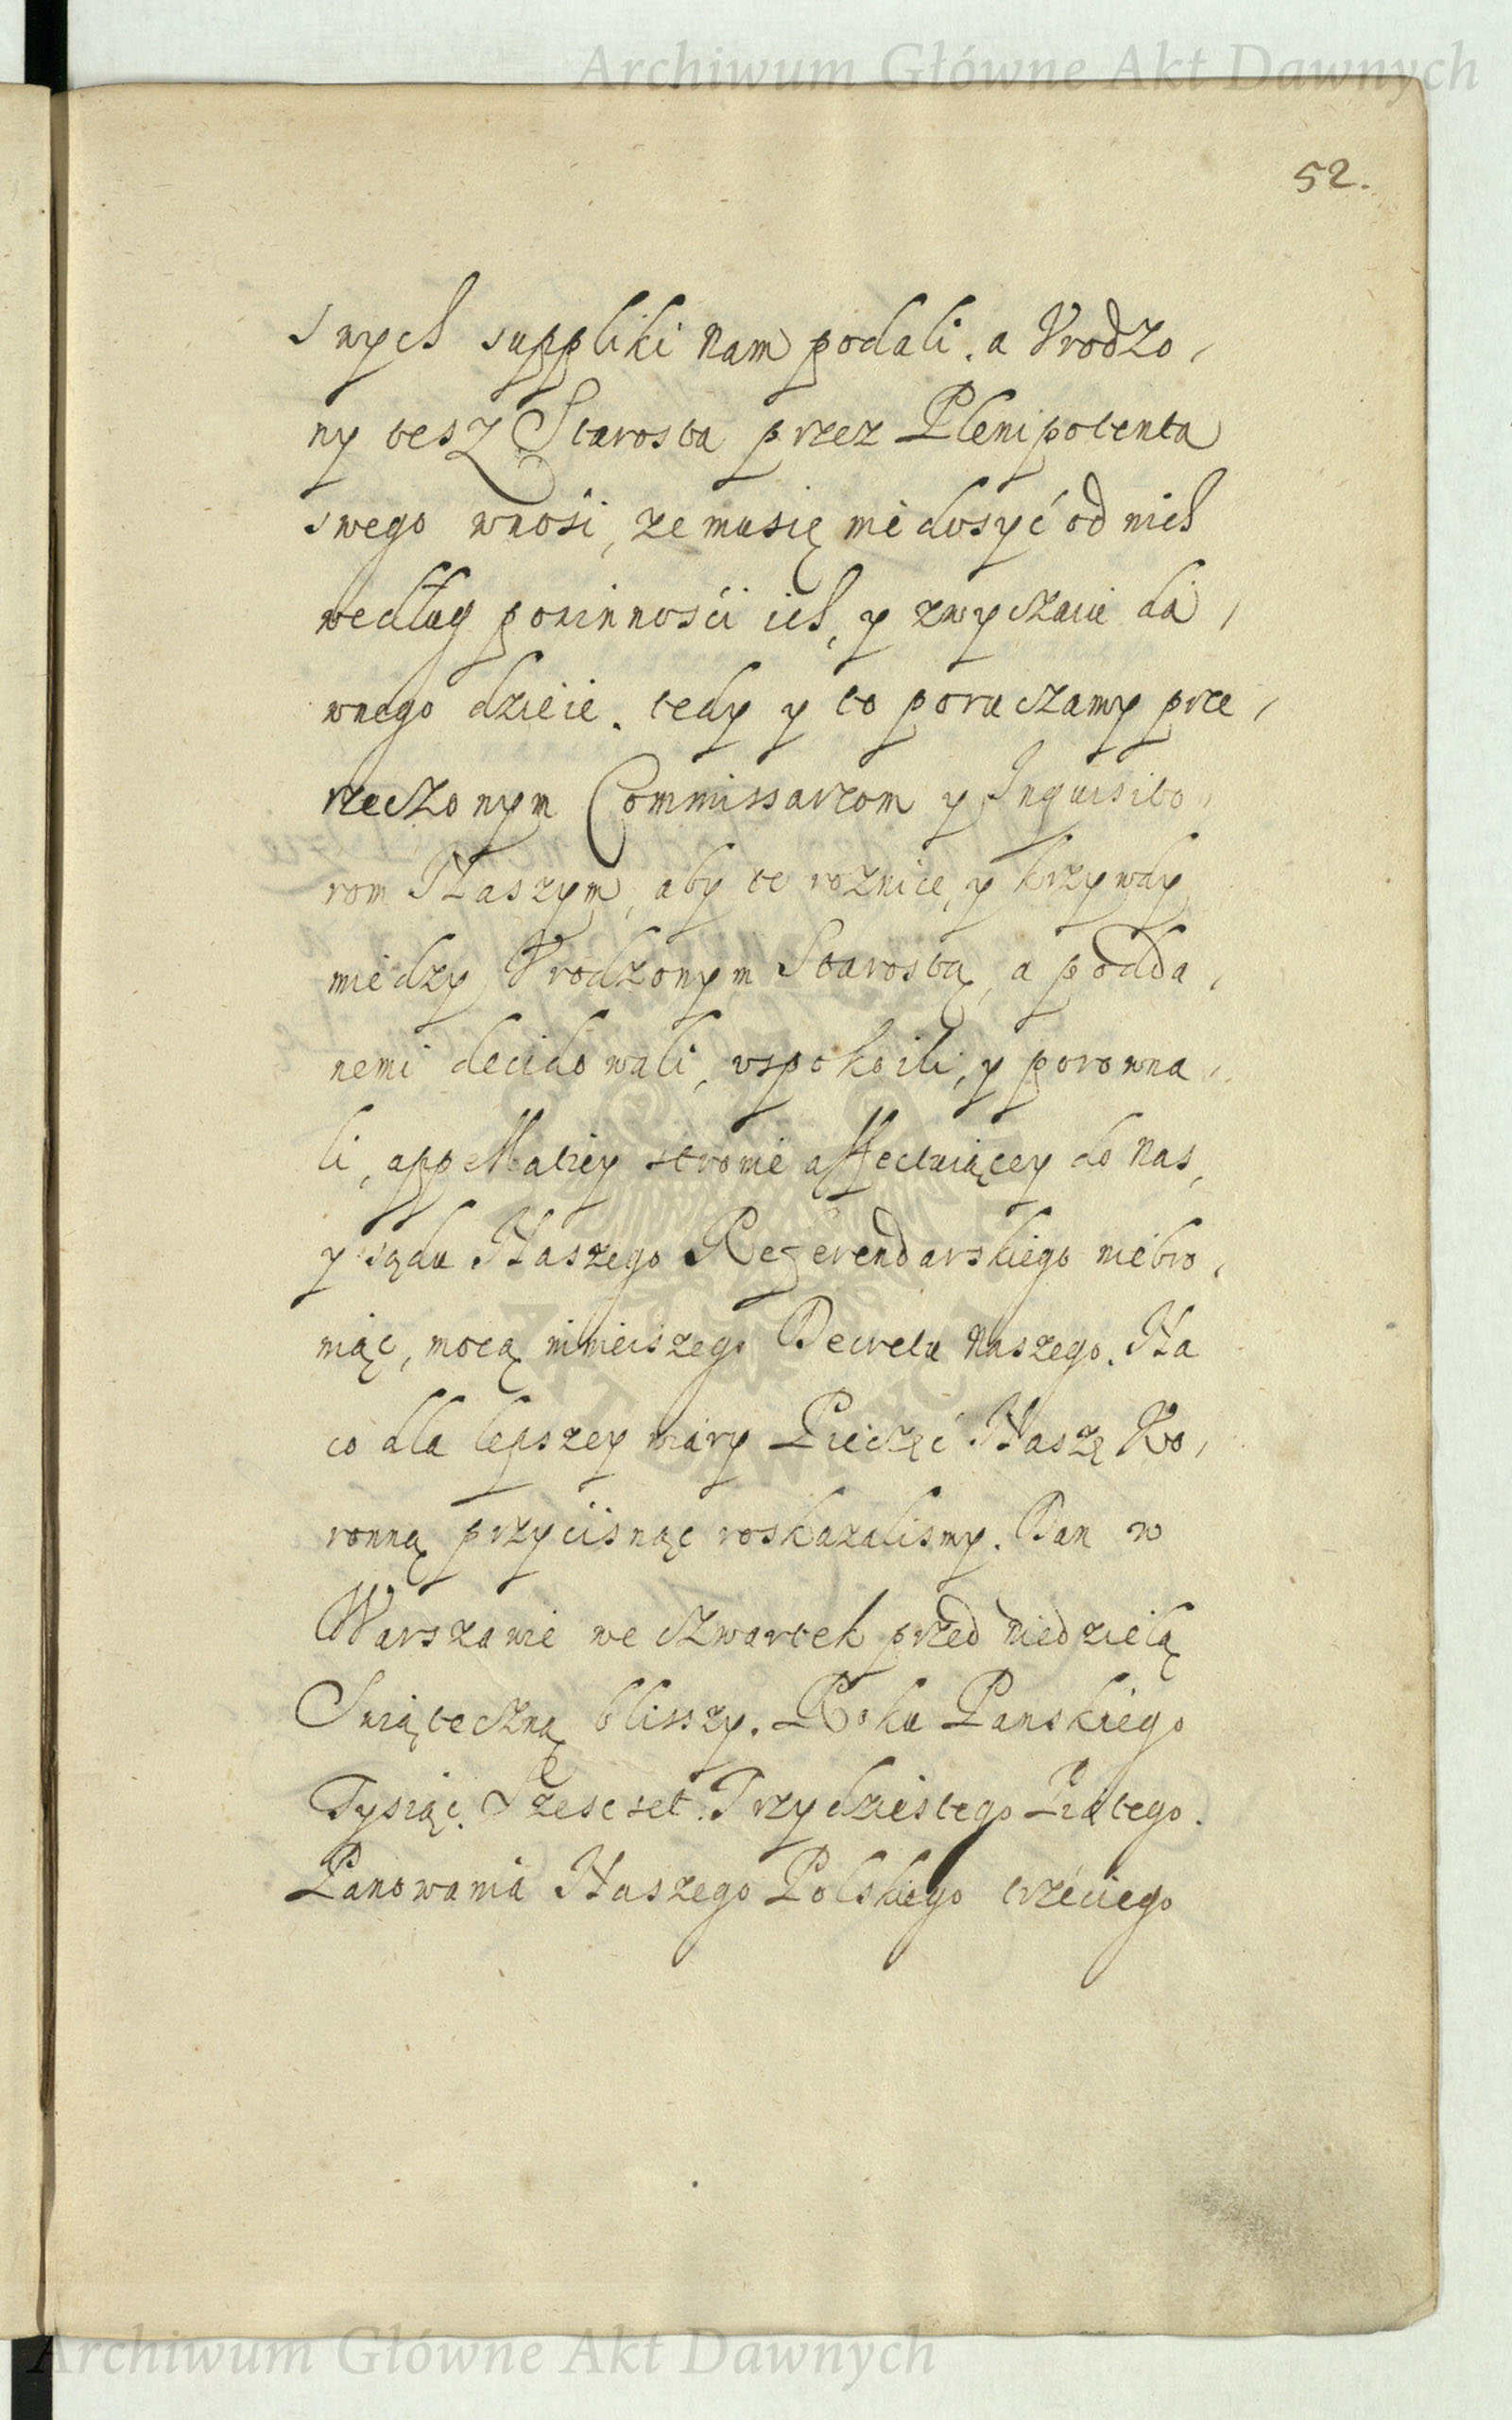 Archiwum Główne Akt Dawnych
52.
swych suppliki nam podali. a Vrodzo,
ny tesz Starosta przez Plenipotenta
swego wnośi, ze mu się nie dosyć od nich
według powinnośći ich, y zwyczaiu da,
wnego dzieie. tedy y to poruczamy prze,
rzeczonym Commissarzom y Inquisito,,
rom Naszym, aby te roznice, y krzywdy
między Vrodzonym Starostą, a podda,
nemi decidowali, vspokoili, y porowna,
li, appellatiey stronie affectuiącey do Nas,
y sądu Naszego Referendarskiego niebro,
niąc, mocą ninieiszego Decretu Naszego. Na
co dla lepszey wiary Pieczęć Naszę Ko,
ronną przyćisnąć roskazalismy. Dan w
Warszawie we czwartek przed niedzielą
Swiąteczną blisszy. Roku Panskiego
Tysiąc. Szescset. Trzydziestego Piątego.
Panowania Naszego Polskiego trzećiego
Archiwum Główne Akt Dawnych